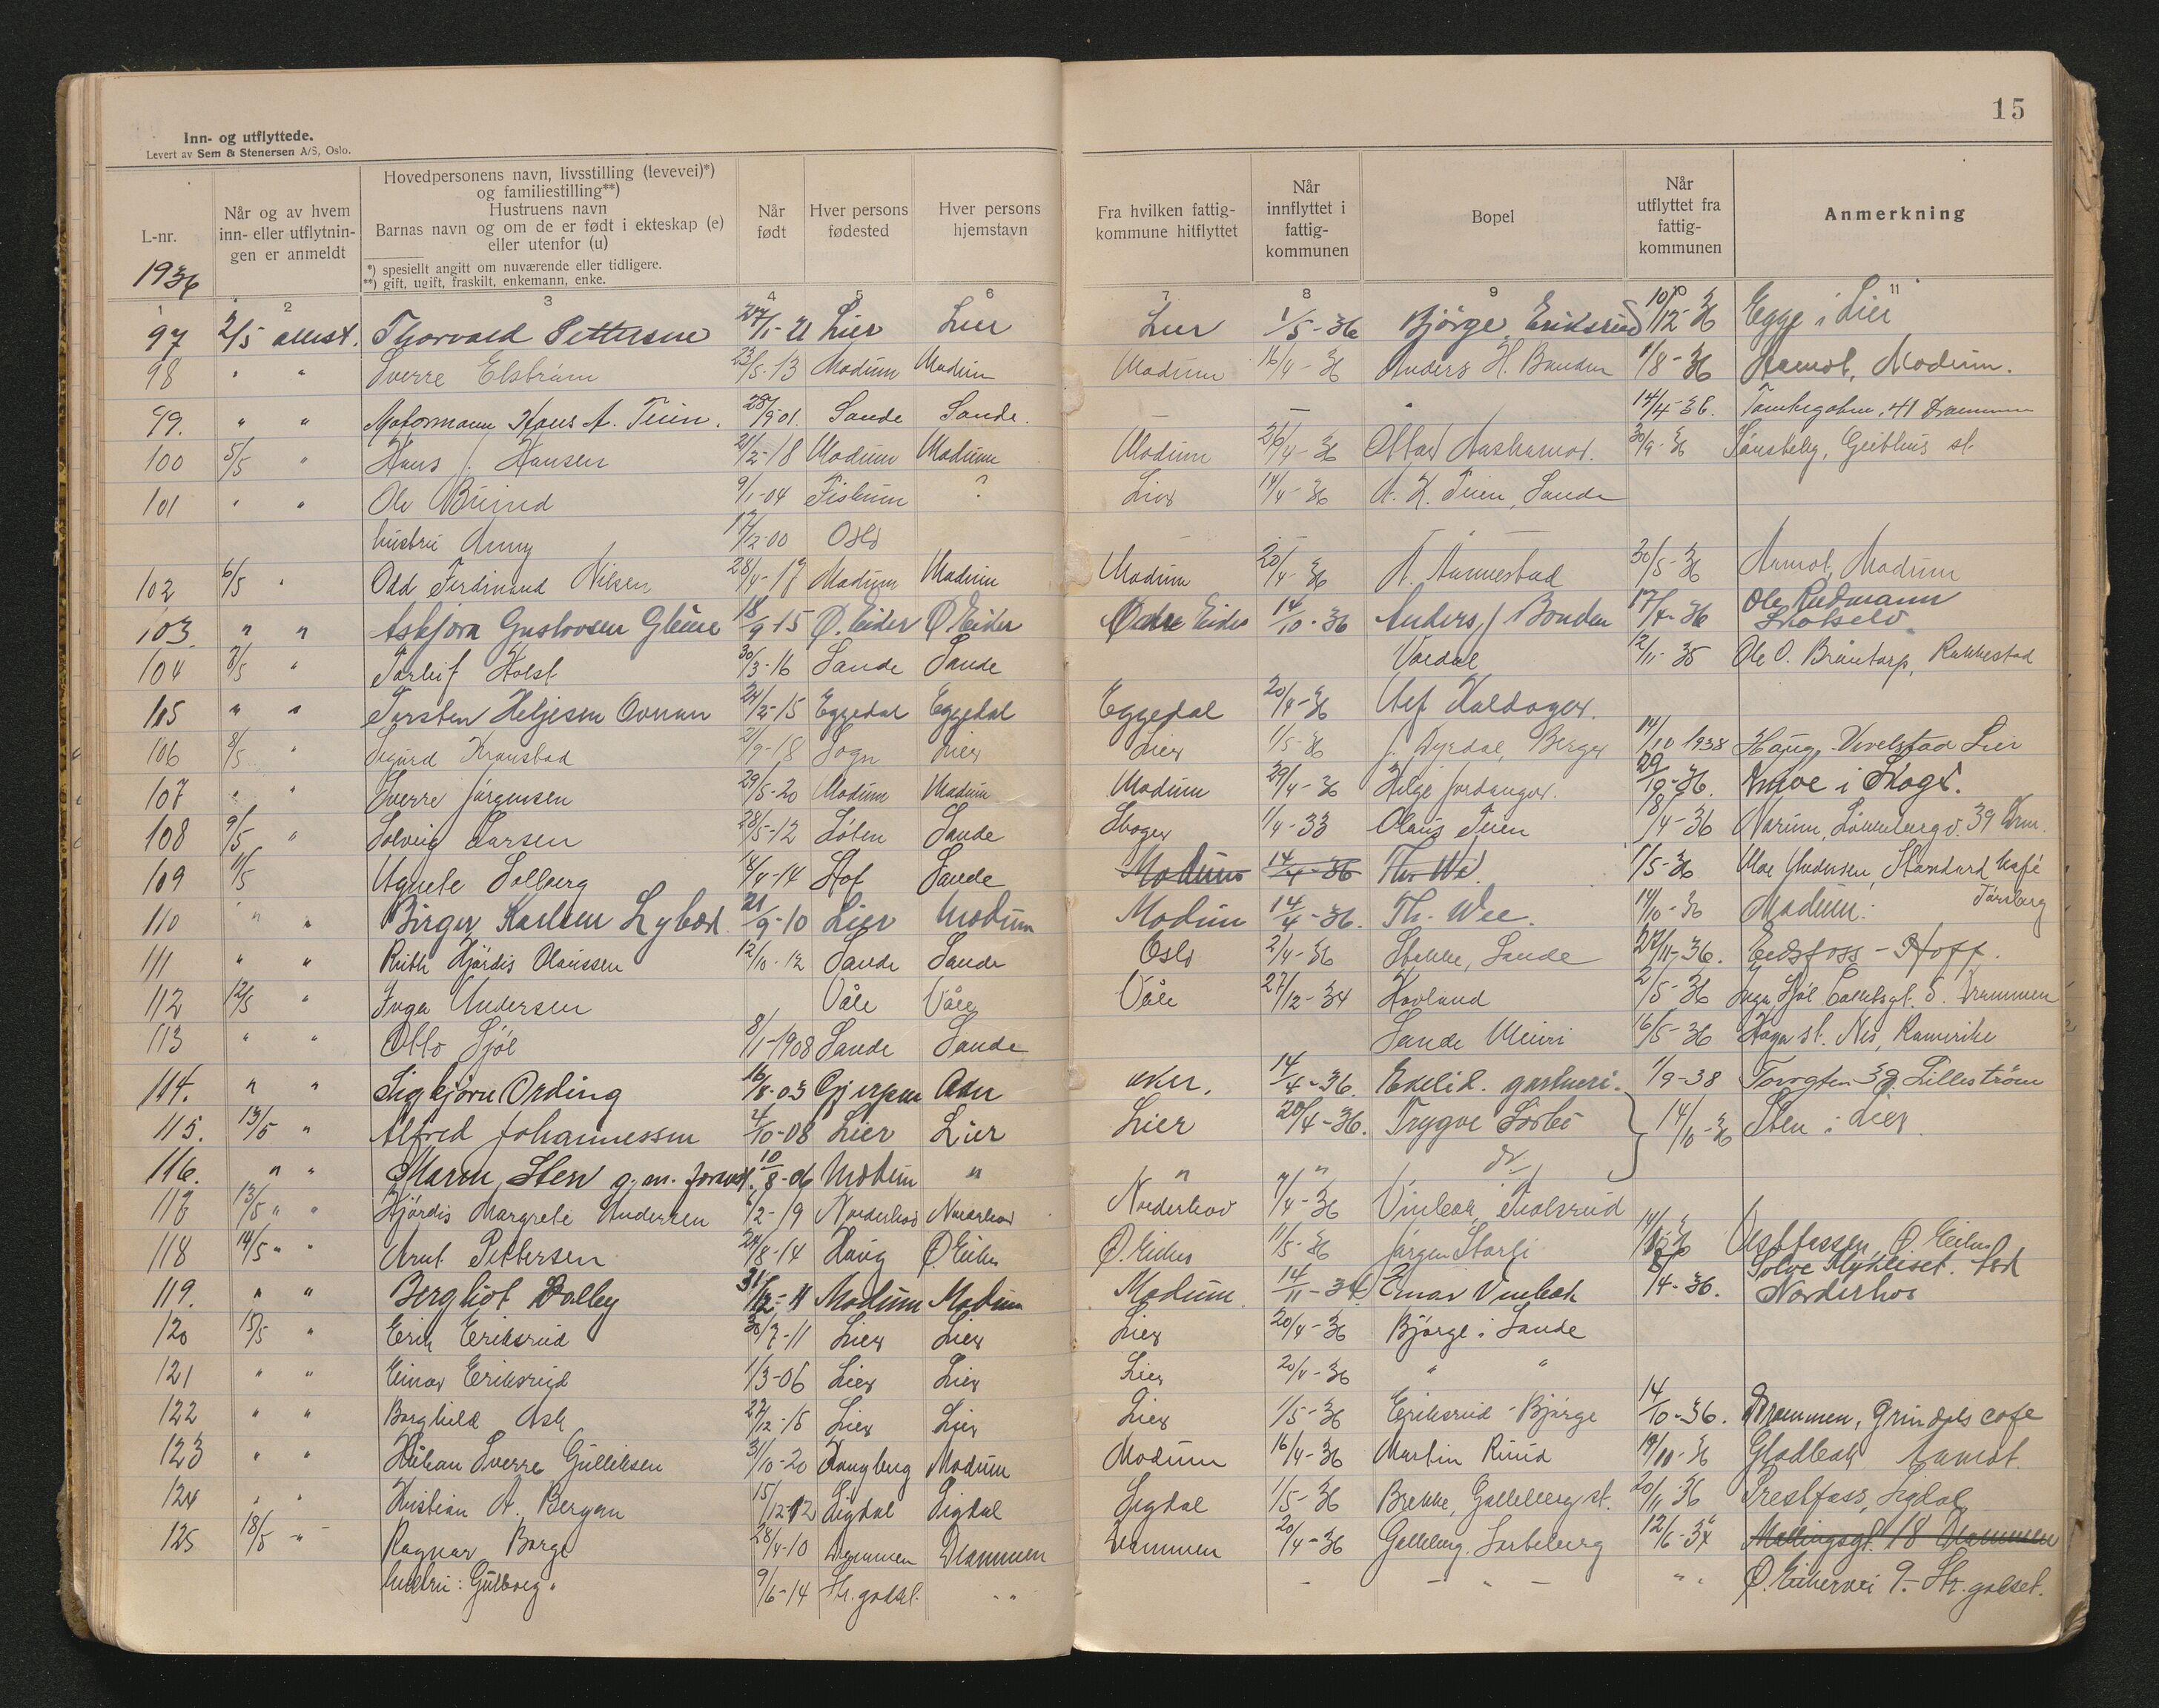 15
Inn- og utflyttede.
Levert av Sem & Stenersen A/S, Oslo.
L-nr.
Når og av hvem inn- eller utflytnin-gen er anmeldt
Hovedpersonens navn, livsstilling (levevei)*)
og familiestilling**)
Hustruens navn
Barnas navn og om de er født i ekteskap (e)
eller utenfor (u)
*) spesiellt angitt om nuværende eller tidligere.
**) gift, ugift, fraskilt, enkemann, enke.
Når født
Hver persons fødested
Hver persons hjemstavn
Fra hvilken fattig-kommune hitflyttet
Når innflyttet i fattig-kommunen
Bopel
Når utflyttet fra fattig-kommunen
Anmerkning
1936
1 2 3 4 5 6 7 8 9 10 11
97 2/5 Thorvald Pettersen 27/1-21 Lier Lier Lier 1/5-36 Bjørge, Eriksrud 10/12-36 Egge i Lier
98 " " Sverre Elstrøm 23/5-13 Modum Modum Modum 16/4-36 Anders H. 1/8-36 Aamot, Modum.
99. " " Motormann Hans A. Teien. 28/9-01. Sande Sande. — — " 14/4-36. 41 Drammen
100 5/5 " Hans J. Hansen 21/2-18 Modum Modum Modum 4-36 30/9-36 Geithus st.
101 " " Ole 9/1-04 Fiskum ? Lier 14/4-36 A. K. Teien, Sande
hustru Anny 17/2-00 Oslo
102 6/5 " Odd Ferdinand Nilsen 28/4-17 Modum Modum Modum 20/4-36 A. Aannestad 30/5-36 Aamot, Modum
103. " " Asbjørn Gustavsen 18/9-15 Ø. Eiker Ø. Eiker Øvre Eiker 14/10-36 Anders J Bonden 17/4-36 Ole Rudmann
Skotselv.
104 7/5 " Torleif Holst 30/3-16 Sande Sande 2/11-35 Ole O. Rakkestad
105 " " Torsten Heljesen 24/2-15 Eggedal Eggedal Eggedal 20/4-36 Leif Haldager.
106 8/5 " Sigurd 21/9-18 Sogn Lier Lier 1/5-36 J. Dyrdal, Berger 14/10 1938 Haug Lier
107 " " Sverre Jørgensen 29/5-20 Modum Modum Modum 29/4-36 Helge 29/10-36. i Skoger.
108 9/5 " Solveig Larsen 28/5-12 Løten Sande Skoger 1/4-33 Olaus Teien 18/4-36 39 Drm.
109 11/5 Agnete Solberg 14/4-14 Hof Sande Modum 14/4-36 Th. We 1/5-36 Moe Standard kafé
Tønsberg
110 " " Birger Karlsen 21/9-10 Lier Modum Modum 14/4-36. Th. Wee. 14/10-36 Modum.
111 " " Ruth Hjördis Olaussen 12/10-12 Sande Sande Oslo 2/4-36 Stokke, Sande 27/11-36. Eidsfoss - Hoff.
112 12/5 " Inga Andersen Våle Våle Våle 27/12-34 Havland 2/5-36 Inga 5. Drammen
113 " " Otto Sjöl 8/1-1908 Sande Sande Sande Meieri 16/5-36 Haga st. Nes, Romerike
114. " " Sigbjørn Ording 16/8-03 Gjerpen Aker Aker. 14/4-36. Ekelid. gartneri. 1/9-38 39. Lillestrøm
115. 13/5 " Alfred Johannessen 4/10-08 Lier Lier Lier 20/4-36. Trygve 14/10-36 Sten i Lier
116. " " Maren Sten g.m. forannt. 10/8-06 Modum " " " do
117 13/5 " " Hjördis Margrete Andersen 6/2-19 Norderhov Norderhov Norderhov 7/4-36
118 14/5 " " Arnt Pettersen 24/8-14 Haug Ø Eiker Ø. Eiker 11/5-36 Jørgen Vestfossen, Ø. Eiker
119. " " Bergliot Dalby 31/12-11 Modum Modum Modum. 14/11-34 Einar 4-36. Norderhov
120 15/5 " Erik Eriksrud 30/7-11 Lier Lier Lier 20/4-36 Bjørge i Sande
121 " " Einar Eriksrud 1/3-06 Lier Lier Lier 20/4-36 " "
122 " " Borghild Ask 27/12-15 Lier Lier Lier 1/5-36 Eriksrud - Bjørge 14/10-36. Drammen, Grindals cafe
123 " " Håkan Sverre Gulliksen 31/10-20 Modum Modum 16/4-36 Martin Ruud 19/10-36 Aamot.
124 " " Kristian A. Bergan 15/12-12 Sigdal Sigdal Sigdal 1/5-36 Brekke, Galleberg st. 20/11-36 Prestfoss, Sigdal
125 18/5 - " - Ragnar Borge 28/4-10 Drammen Drammen Drammen 20/4-36 Galleberg. 12/6-37 18 Drammen
hustru: Gulborg " 9/6-14 Str. godset. " " - - " - " " Ø. Eikervei 9. - Str. godset.